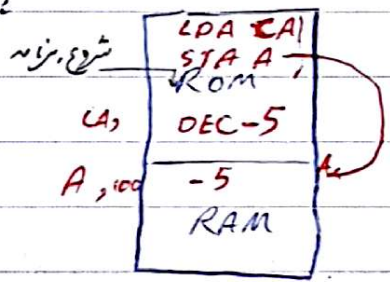 LDA CA
STA A
شروع برنامه
ROM
CA, DEC -5
A, 100 -5
A
RAM